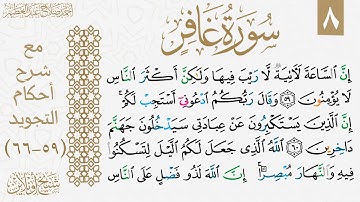 ٨
سورة غافر
مع
شرح
أحكام
التجويد
(٥٩-٦٦)
إِنَّ السَّاعَةَ لَآتِيَةٌ لَّا رَيْبَ فِيهَا وَلَٰكِنَّ أَكْثَرَ النَّاسِ
لَا يُؤْمِنُونَ ٥٩ وَقَالَ رَبُّكُمُ ادْعُونِي أَسْتَجِبْ لَكُمْ ۚ
إِنَّ الَّذِينَ يَسْتَكْبِرُونَ عَنْ عِبَادَتِي سَيَدْخُلُونَ جَهَنَّمَ
دَاخِرِينَ ٦٠ اللَّهُ الَّذِي جَعَلَ لَكُمُ اللَّيْلَ لِتَسْكُنُوا
فِيهِ وَالنَّهَارَ مُبْصِرًا ۚ إِنَّ اللَّهَ لَذُو فَضْلٍ عَلَى النَّاسِ